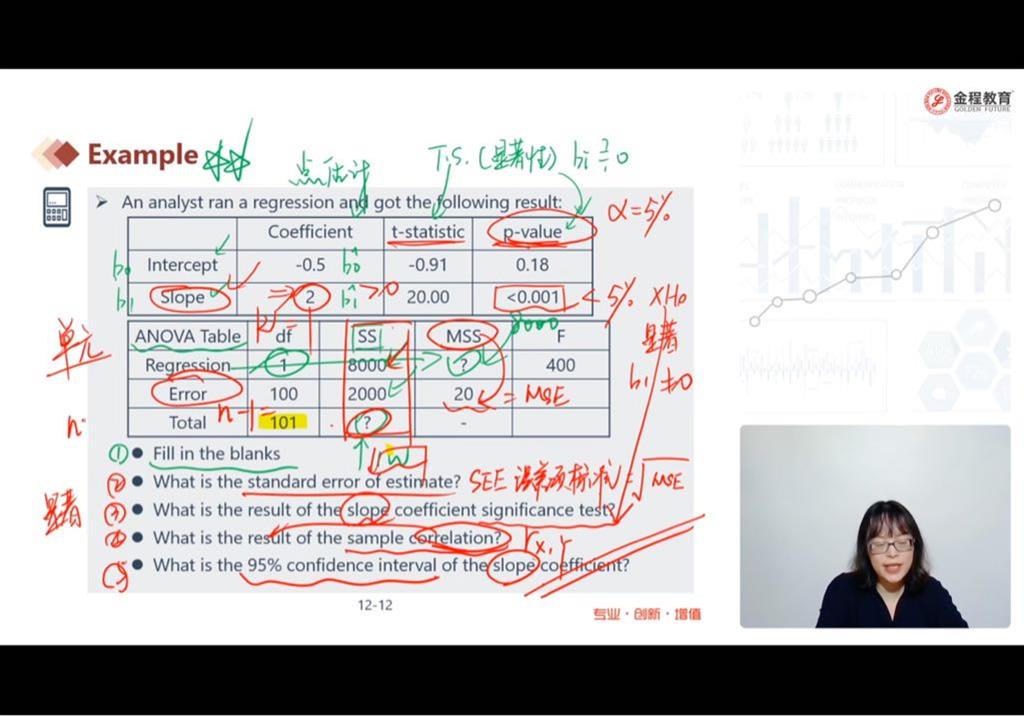 金程教育
GOLDEN FUTURE
Example
点估计
T.S. (显著性) b₁ ≟ 0
➢ An analyst ran a regression and got the following result:
α=5%
Coefficient t-statistic p-value
b₀ Intercept -0.5 b̂₀ -0.91 0.18
b₁ Slope 2 b̂₁ >0 20.00 <0.001 < 5% ×H₀
k
8000
单元
显著
b₁≠0
ANOVA Table df SS MSS F
Regression 1 8000 ? 400
Error 100 2000 20 = MSE
n-1=
Total 101 ? -
① ● Fill in the blanks
② ● What is the standard error of estimate? SEE 误差项标准 = √MSE
显著
③ ● What is the result of the slope coefficient significance test?
④ ● What is the result of the sample correlation? rₓ,ᵧ
⑤ ● What is the 95% confidence interval of the slope coefficient?
12-12
专业·创新·增值